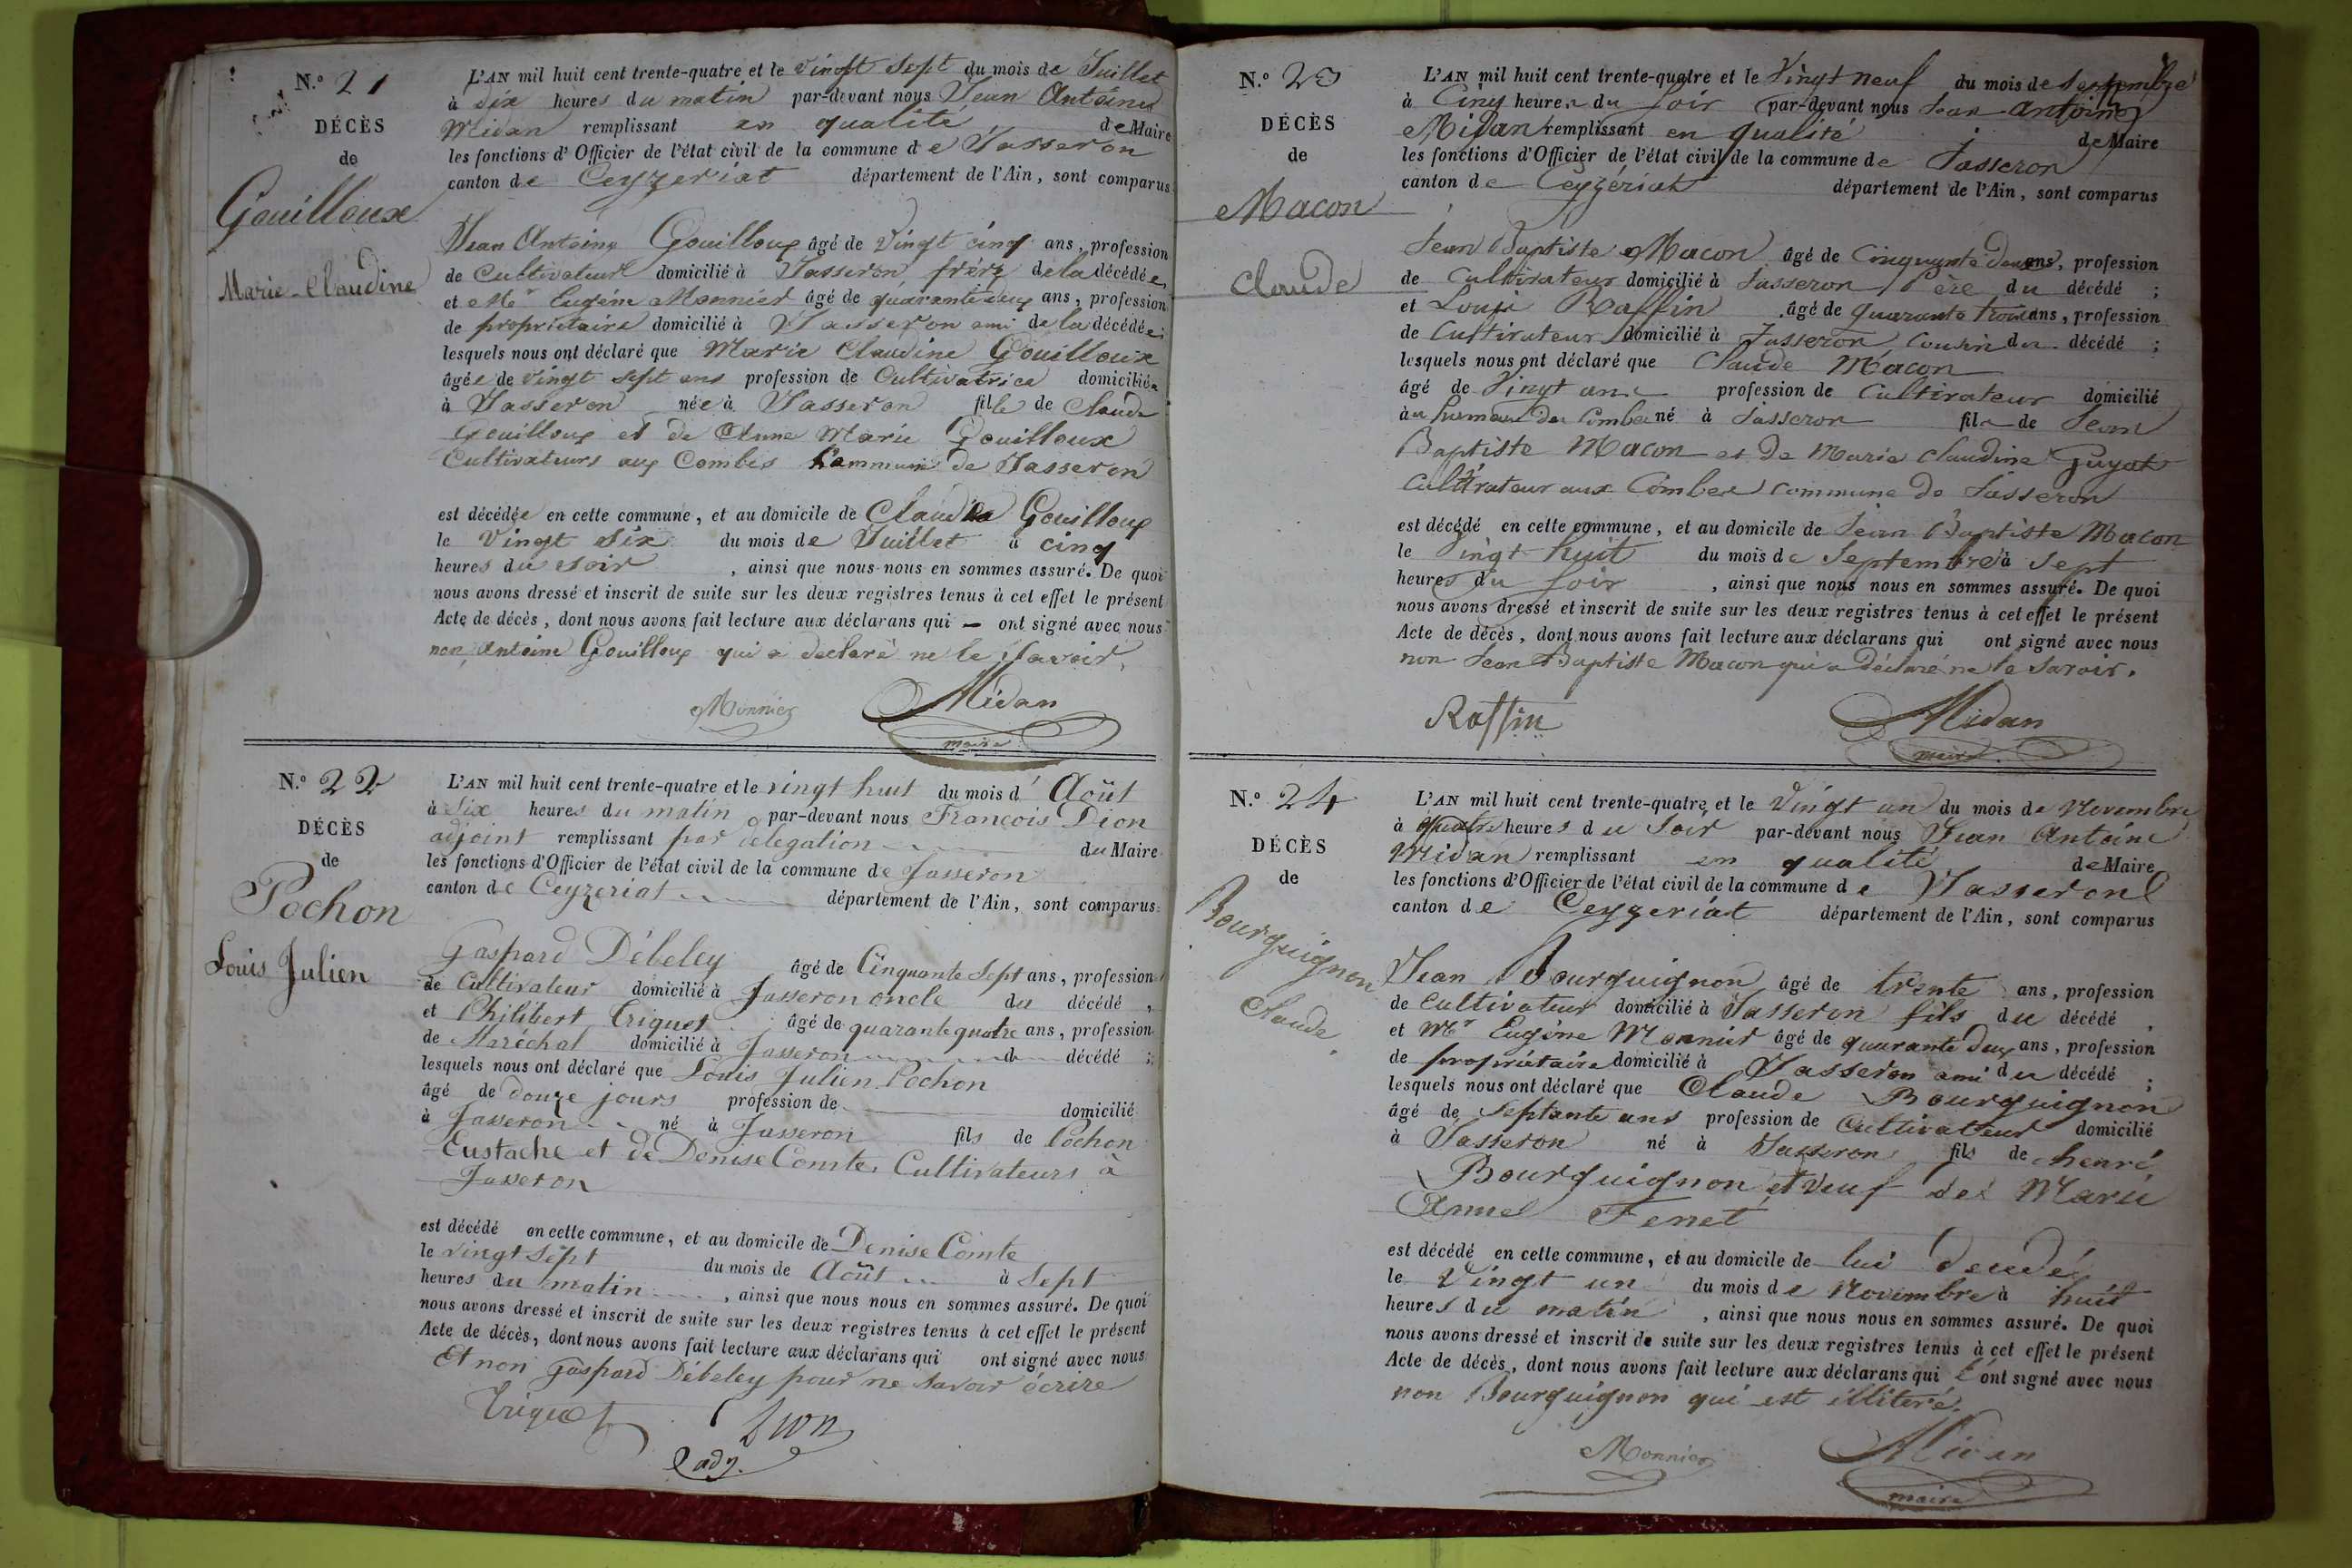 N.o 21
DÉCÈS
de
Gouilloux
Marie-Claudine
L'AN mil huit cent trente-quatre et le vingt sept du mois de Juillet
à dix heures du matin par-devant nous Jean Antoine
Midan remplissant en qualité de Maire
les fonctions d'Officier de l'état civil de la commune de Jasseron
canton de Ceyzeriat département de l'Ain, sont comparus
Jean Antoine Gouilloux âgé de Vingt cinq ans, profession
de Cultivateur domicilié à Jasseron frère de la décédée,
et Mr Eugène Monnier âgé de quarante deux ans, profession
de propriétaire domicilié à Jasseron ami de la décédée;
lesquels nous ont déclaré que Marie Claudine Gouilloux
âgée de vingt sept ans profession de Cultivatrice domiciliée
à Jasseron née à Jasseron fille de Claude
Gouilloux et de Anne Marie Gouilloux
Cultivateurs aux Combes Commune de Jasseron
est décédée en cette commune, et au domicile de Claude Gouilloux
le Vingt Six du mois de Juillet à cinq
heures du soir, ainsi que nous nous en sommes assuré. De quoi
nous avons dressé et inscrit de suite sur les deux registres tenus à cet effet le présent
Acte de décès, dont nous avons fait lecture aux déclarans qui — ont signé avec nous
non Antoine Gouilloux qui a déclaré ne le Savoir.
Monnier Midan
maire
N.o 22
DÉCÈS
de
Pochon
Louis Julien
L'AN mil huit cent trente-quatre et le vingt huit du mois d' Août
à Six heures du matin par-devant nous François Dion
adjoint remplissant par délégation du Maire
les fonctions d'Officier de l'état civil de la commune de Jasseron
canton de Ceyzeriat département de l'Ain, sont comparus
Gaspard Débeley âgé de Cinquante Sept ans, profession
de Cultivateur domicilié à Jasseron oncle du décédé,
et Philibert Triquet âgé de quarante quatre ans, profession
de Maréchal domicilié à Jasseron d décédé;
lesquels nous ont déclaré que Louis Julien Pochon
âgé de douze jours profession de domicilié
à Jasseron né à Jasseron fils de Pochon
Eustache et de Denise Comte, Cultivateurs à
Jasseron
est décédé en cette commune, et au domicile de Denise Comte
le vingt Sept du mois de Août à Sept
heures du matin, ainsi que nous nous en sommes assuré. De quoi
nous avons dressé et inscrit de suite sur les deux registres tenus à cet effet le présent
Acte de décès, dont nous avons fait lecture aux déclarans qui ont signé avec nous
Et non gaspard Débeley pour ne Savoir écrire
Triquet Dion
adj.
N.o 23
DÉCÈS
de
Macon
Claude
L'AN mil huit cent trente-quatre et le Vingt neuf du mois de Septembre
à Cinq heures du soir par-devant nous Jean Antoine
Midan remplissant en qualité de Maire
les fonctions d'Officier de l'état civil de la commune de Jasseron
canton de Ceyzériat département de l'Ain, sont comparus
Jean Baptiste Macon âgé de Cinquante deux ans, profession
de Cultivateur domicilié à Jasseron Père du décédé;
et Louis Raffin âgé de quarante trois ans, profession
de Cultivateur domicilié à Jasseron Cousin du décédé;
lesquels nous ont déclaré que Claude Macon
âgé de Vingt ans profession de Cultivateur domicilié
au hameau des Combes né à Jasseron fils de Jean
Baptiste Macon et de Marie Claudine Guyot
Cultivateur aux Combes commune de Jasseron
est décédé en cette commune, et au domicile de Jean Baptiste Macon
le Vingt huit du mois de Septembre à Sept
heures du soir, ainsi que nous nous en sommes assuré. De quoi
nous avons dressé et inscrit de suite sur les deux registres tenus à cet effet le présent
Acte de décès, dont nous avons fait lecture aux déclarans qui ont signé avec nous
non Jean Baptiste Macon qui a déclaré ne le Savoir.
Raffin Midan
maire
N.o 24
DÉCÈS
de
Bourguignon
Claude.
L'AN mil huit cent trente-quatre et le Vingt un du mois de Novembre
à quatre heures du Soir par-devant nous Jean Antoine
Midan remplissant en qualité de Maire
les fonctions d'Officier de l'état civil de la commune de Jasseron
canton de Ceyzeriat département de l'Ain, sont comparus
Jean Bourguignon âgé de trente ans, profession
de cultivateur domicilié à Jasseron fils du décédé,
et Mr Eugène Monnier âgé de quarante deux ans, profession
de propriétaire domicilié à Jasseron ami du décédé;
lesquels nous ont déclaré que Claude Bourguignon
âgé de Septante ans profession de Cultivateur domicilié
à Jasseron né à Jasseron fils de henri
Bourguignon et veuf de Marie
Anne Ferret
est décédé en cette commune, et au domicile de lui
le Vingt un du mois de Novembre à huit
heures du matin, ainsi que nous nous en sommes assuré. De quoi
nous avons dressé et inscrit de suite sur les deux registres tenus à cet effet le présent
Acte de décès, dont nous avons fait lecture aux déclarans qui ont signé avec nous
non Bourguignon qui est illitéré.
Monnier Midan
maire